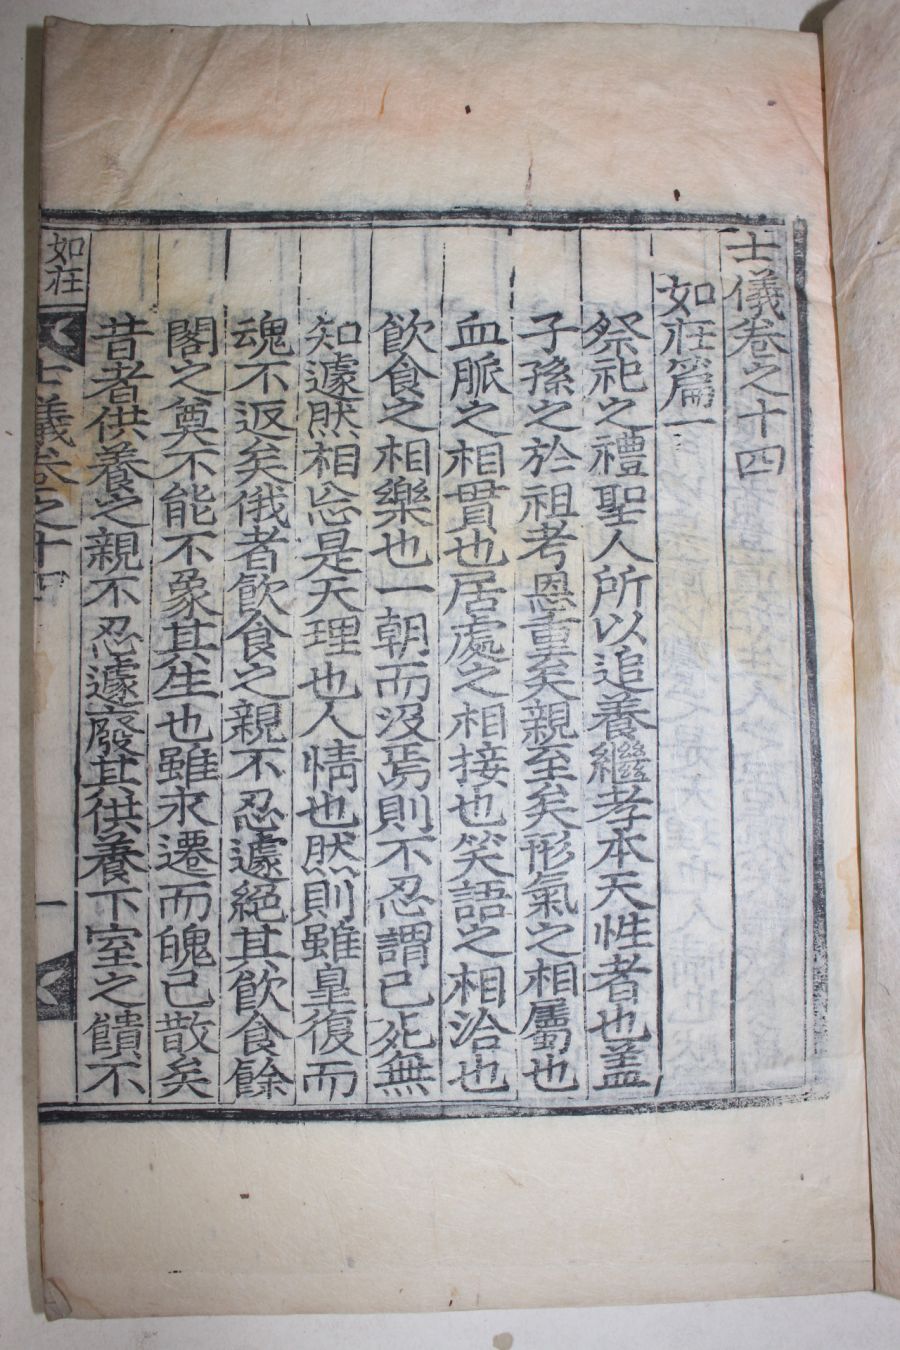 士儀卷之十四
如在篇一
祭祀之禮聖人所以追養繼孝本天性者也盖
子孫之於祖考恩重矣親至矣形氣之相屬也
血脈之相貫也居處之相接也笑語之相洽也
飮食之相樂也一朝而没焉則不忍謂已死無
知遽然相忘是天理也人情也然則雖皇復而
魂不返矣俄者飮食之親不忍遽絕其飮食餘
閣之奠不能不象其生也雖永遷而魄已散矣
昔者供養之親不忍遽廢其供養下室之饋不
如在
士儀卷之十四
一